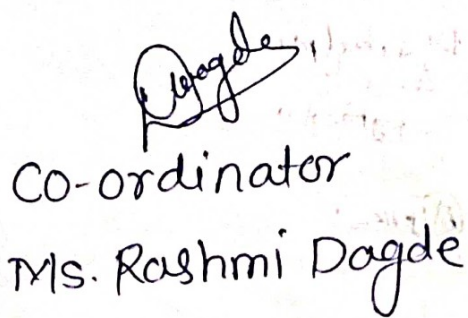 Dagde
Co-ordinator
Ms. Rashmi Dagde